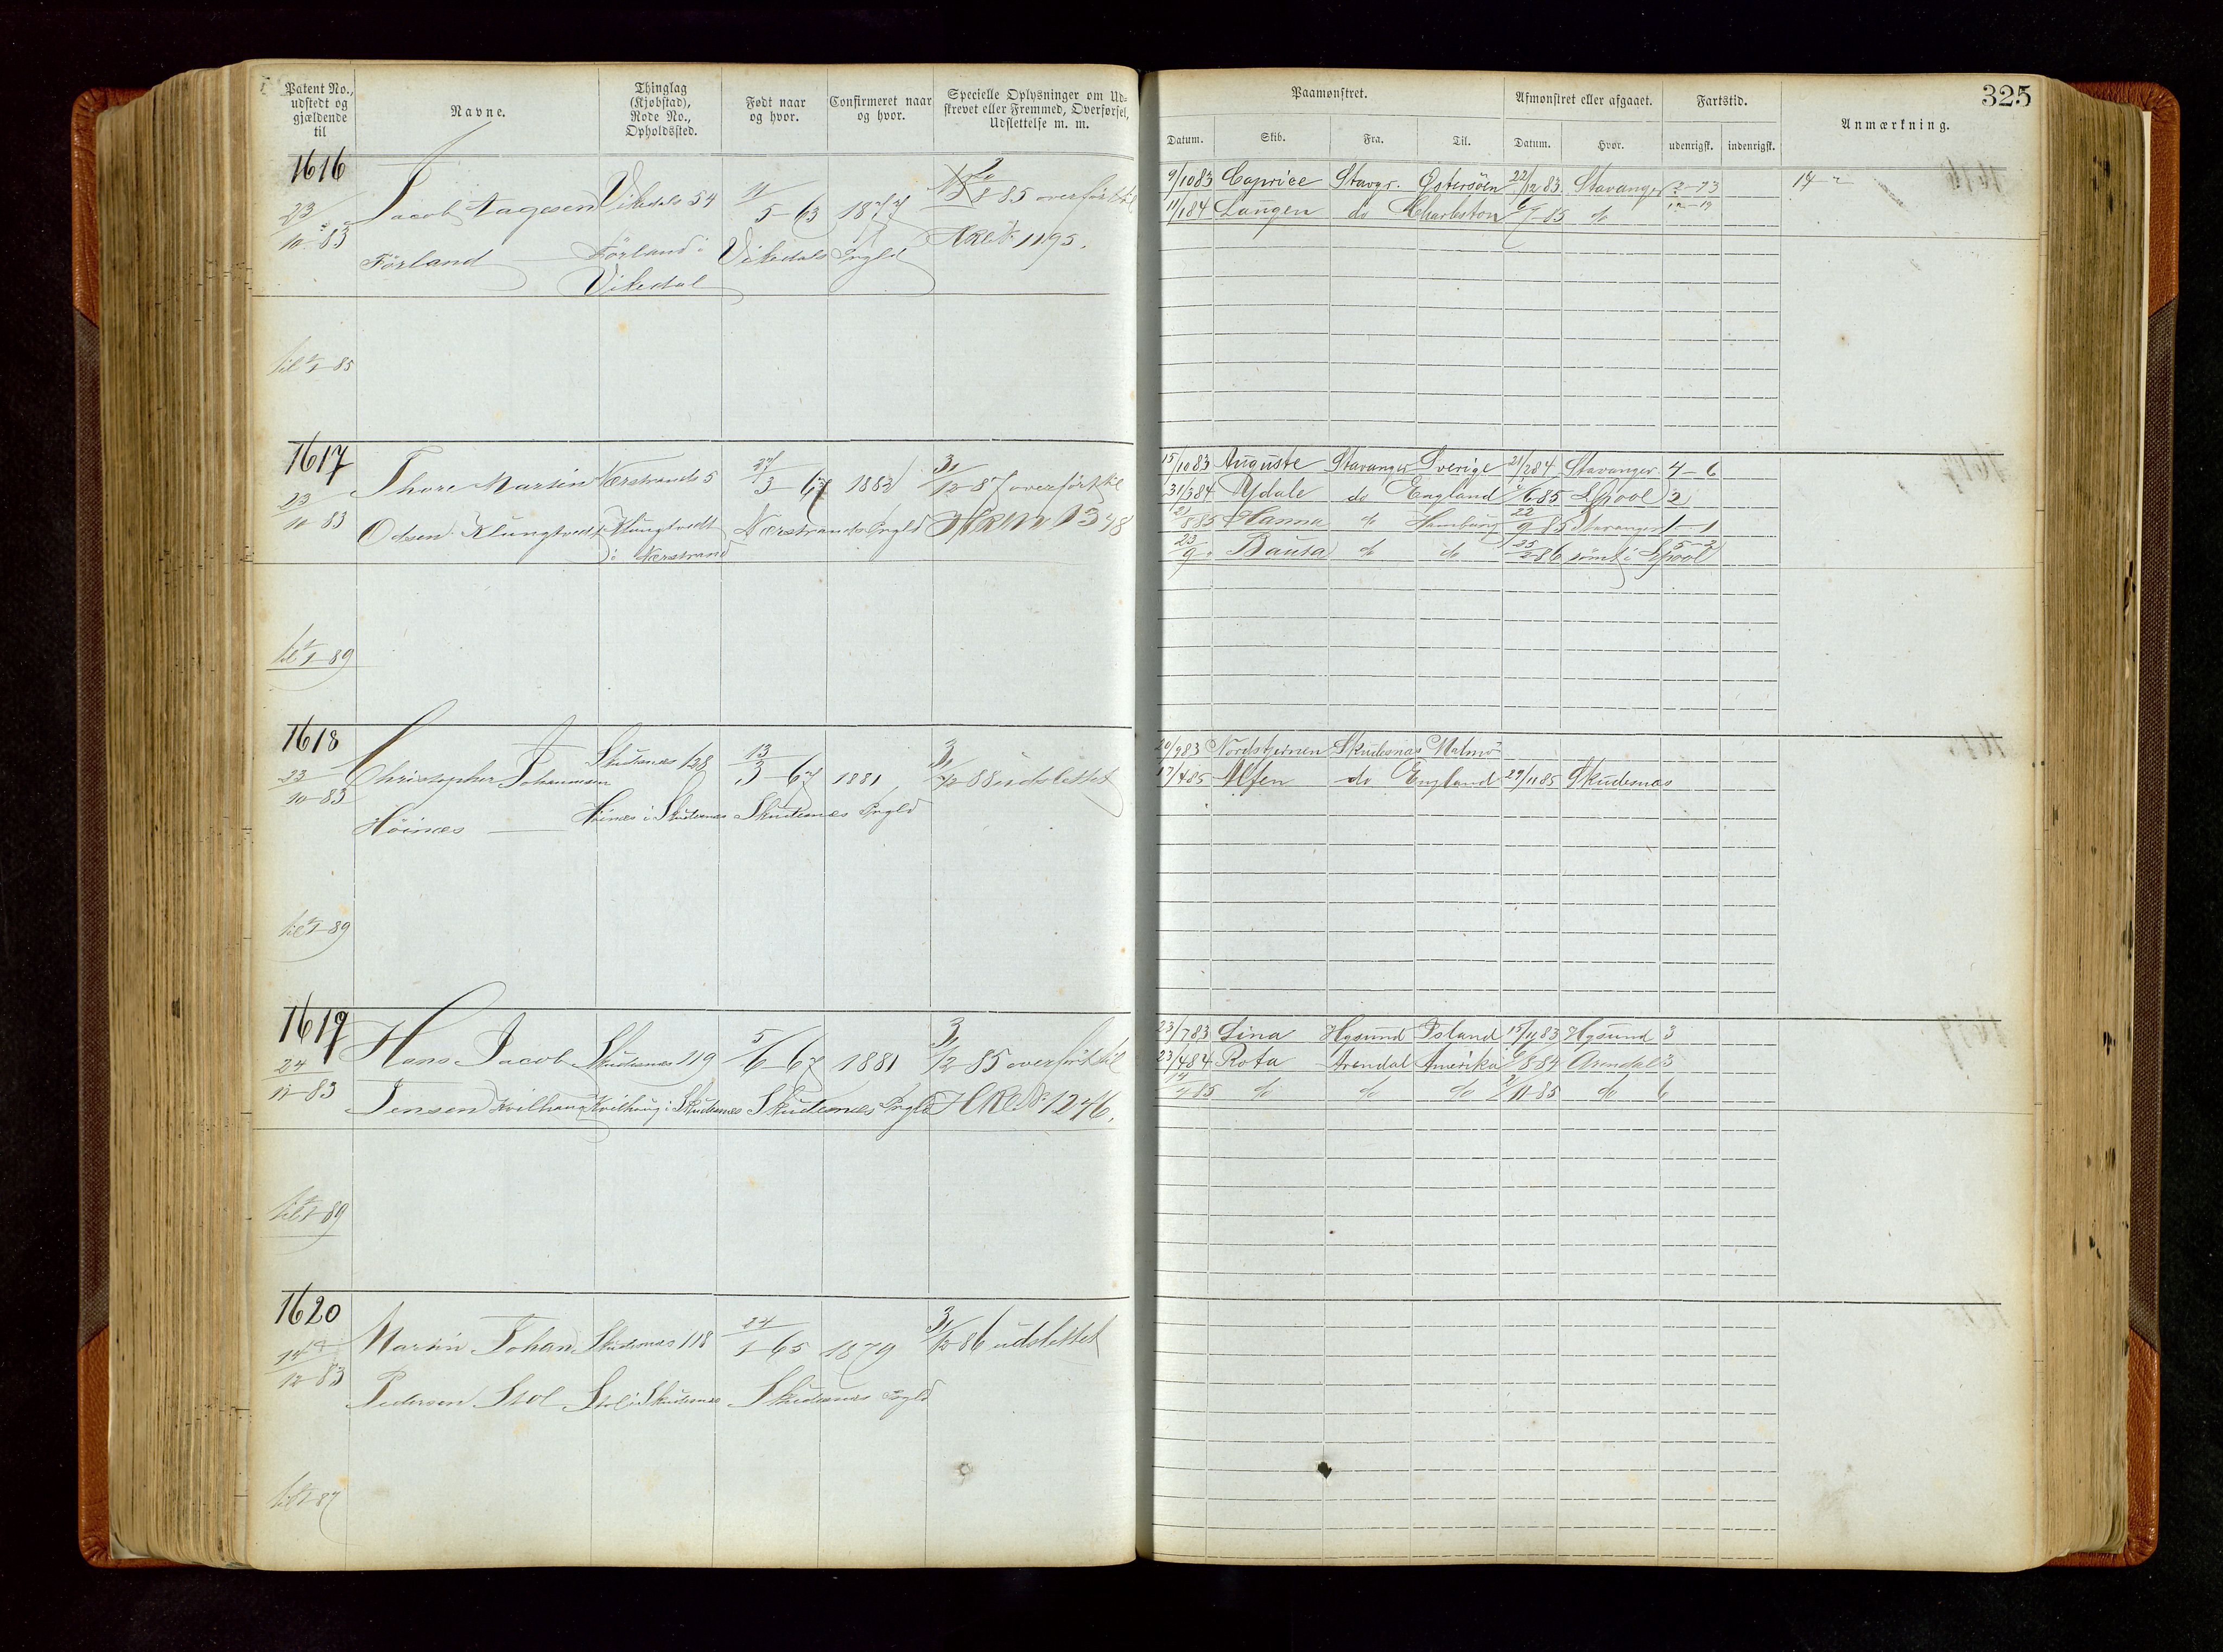 Patent No., udstedt og gjældende til
Navne.
Thinglag (Kjøbstad), Rode No., Opholdssted.
Født naar og hvor.
Confirmeret naar og hvor.
Specielle Oplysninger om Udskrevet eller Fremmed, Overførsel, Udslettelse m. m.
Paamønstret.
Afmønstret eller afgaaet.
Fartstid.
Anmærkning.
325
Datum. Skib. Fra. Til. Datum. Hvor. udenrigsk. indenrigsk.
1616
Jacob Aagesen Vikedals 54 5-63 1877 85 overført til
23/10-83
Førland Førland i Vikedals Prgld HRL No 1195.
Vikedal
til 1/1-85
9/10 83 Caprice Stavgr. Østersøen 22/12 83 Stavanger
11/1 84 Langen do Charleston do
1617
Thore Martin Nærstrands 5 27/3-67 1882 31/12-87 overført til
23/10 83
Odsen Klungtvedt Klungtvedt Nærstrands Prgld 1348
i Nærstrand
til 1/1-89
15/10 83 Auguste Stavanger Sverige 21/2 84 Stavanger 4-6
31/3 84 Ydale do England 6 85 Lpool 2
85 Hanna do Hamburg 22/9-85 Stavanger 1-1
23/9 Bausa do do 25/2-86 rømt i Lpool 5-2
1618
Christopher Johannesen Skudesnæs 128 13/3-67 1881 31/12-88 udslettet
23/10-83
Høinæs Høinæs i Skudesnæs Skudesnæs Prgld
til 1/1-89
20/9 83 Nordstjernen Skudesnæs Malmø
17/4 85 Alfen do England 29/11 85 Skudesnæs
1619
Hans Jacob Skudesnæs 119 5/6-67 1881 31/12-85 overført til
24/11-83
Jensen Kvilhaug Kvilhaug i Skudesnæs Skudesnæs Prgld HRL No 1246.
til 1/1-89
23/7 83 Lina Hgsund Island 15/11 83 Hgsund 3
23/4 84 Rota Arendal Amerika 8 84 Arendal 3
14/4 85 do do do 2/11-85 do 6
1620
Martin Johan Skudesnæs 118 24/1-65 1879 31/12-86 udslettet
12-83
Pedersen Stol Stol i Skudesnæs Skudesnæs Prgld
til 1/1-87